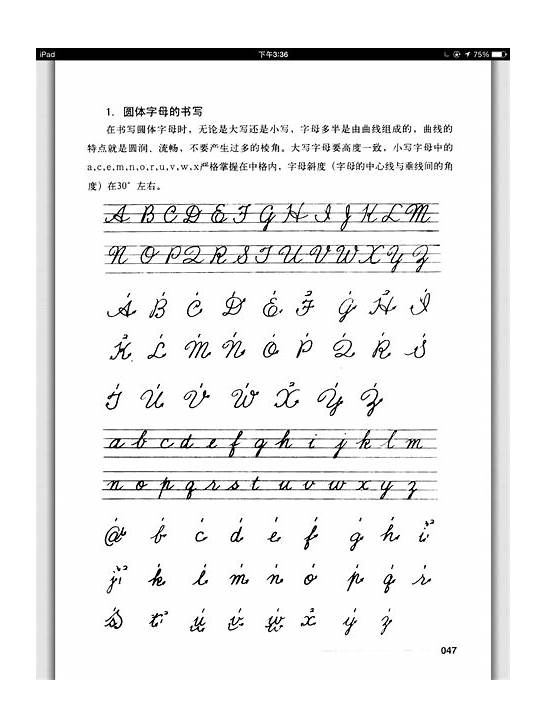 iPad 下午3:36 75%
1. 圆体字母的书写
在书写圆体字母时，无论是大写还是小写，字母多半是由曲线组成的，曲线的
特点就是圆润、流畅，不要产生过多的棱角。大写字母要高度一致，小写字母中的
a,c,e,m,n,o,r,u,v,w,x严格掌握在中格内，字母斜度（字母的中心线与垂线间的角
度）在30°左右。
A B C D E F G H I J K L M
N O P Q R S T U V W X Y Z
A B C D E F G H I
K L M N O P Q R S
T U V W X Y Z
a b c d e f g h i j k l m
n o p q r s t u v w x y z
a b c d e f g h i
j k l m n o p q r
s t u v w x y z
047